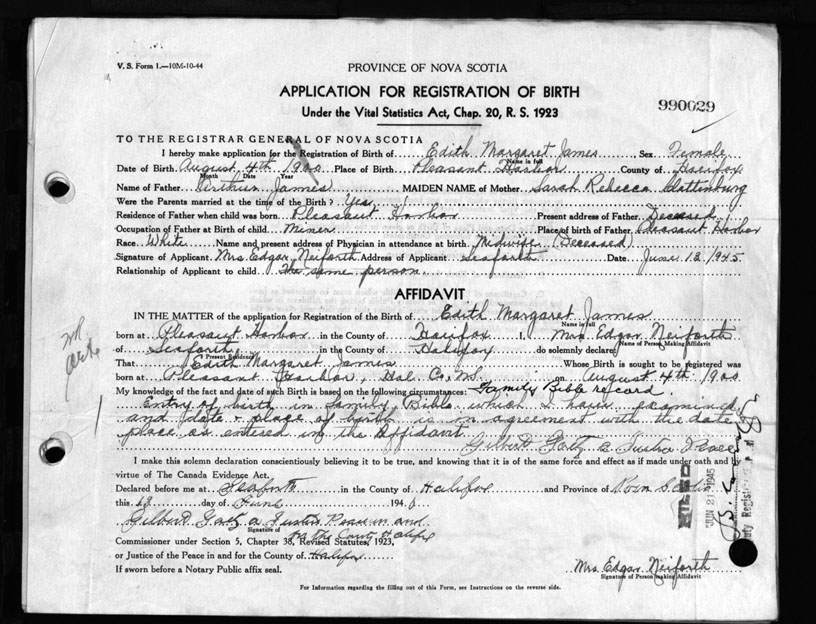 V. S. Form 1.—10M-10-44
PROVINCE OF NOVA SCOTIA
APPLICATION FOR REGISTRATION OF BIRTH
Under the Vital Statistics Act, Chap. 20, R. S. 1923
990029
TO THE REGISTRAR GENERAL OF NOVA SCOTIA
I hereby make application for the Registration of Birth of Edith Margaret James Sex Female
Name in full
Date of Birth August 4th 1900 Place of Birth Pleasant Harbor County of Halifax
Month Date Year
Name of Father Arthur James MAIDEN NAME of Mother Sarah Rebecca Clattenburg
Were the Parents married at the time of the Birth? Yes
Residence of Father when child was born Pleasant Harbor Present address of Father Deceased
Occupation of Father at Birth of child Miner Place of birth of Father Pleasant Harbor
Race White Name and present address of Physician in attendance at birth Midwife (Deceased)
Signature of Applicant Mrs Edgar Neiforth Address of Applicant Seaforth Date June 13 1945
Relationship of Applicant to child The same person.
AFFIDAVIT
IN THE MATTER of the application for Registration of the Birth of Edith Margaret James
Name in full
born at Pleasant Harbor in the County of Halifax I Mrs Edgar Neiforth
Name of Person Making Affidavit
of Seaforth in the County of Halifax do solemnly declare
Present Residence
That Edith Margaret James Whose Birth is sought to be registered was
born at Pleasant Harbor, Hal. Co. N.S. on August 4th 1900
My knowledge of the fact and date of such Birth is based on the following circumstances: Family Bible record.
Entry of birth in family Bible which I have examined
and date & place of birth is in agreement with the date
place as entered in the affidavit
Gilbert Gaetz a Justice Peace
I make this solemn declaration conscientiously believing it to be true, and knowing that it is of the same force and effect as if made under oath and by
virtue of The Canada Evidence Act.
Declared before me at Seaforth in the County of Halifax and Province of Nova Scotia
this 13 day of June 194
Gilbert Gaetz a Justice Peace in and
Signature of
for the County Halifax
Commissioner under Section 5, Chapter 38, Revised Statutes, 1923,
or Justice of the Peace in and for the County of Halifax
If sworn before a Notary Public affix seal.
Mrs Edgar Neiforth
Signature of Person Making Affidavit
For Information regarding the filling out of this Form, see Instructions on the reverse side.
FILED
JUN 21 1945
Deputy Registrar